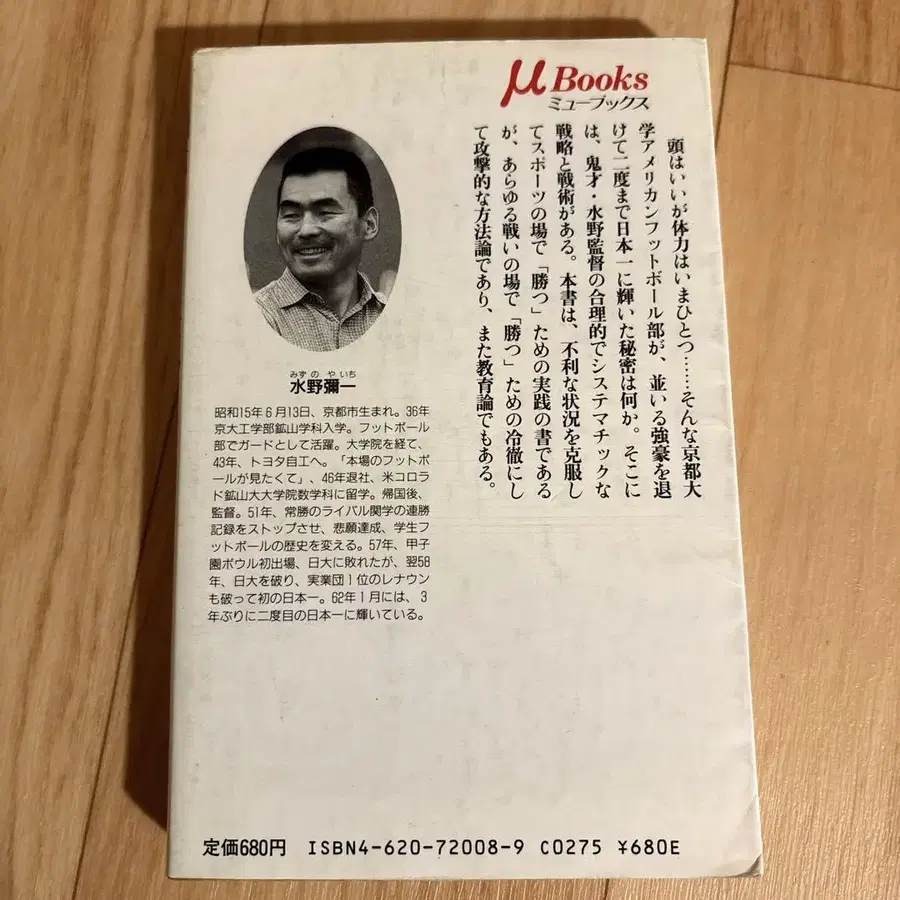 μ Books
ミューブックス
頭はいいが体力はいまひとつ……そんな京都大
学アメリカンフットボール部が、並いる強豪を退
けて二度まで日本一に輝いた秘密は何か。そこに
は、鬼才・水野監督の合理的でシステマチックな
戦略と戦術がある。本書は、不利な状況を克服し
てスポーツの場で「勝つ」ための実践の書である
が、あらゆる戦いの場で「勝つ」ための冷徹にし
て攻撃的な方法論であり、また教育論でもある。
みずの やいち
水野彌一
昭和15年6月13日、京都市生まれ。36年
京大工学部鉱山学科入学。フットボール
部でガードとして活躍。大学院を経て、
43年、トヨタ自工へ。「本場のフットボ
ールが見たくて」、46年退社、米コロラ
ド鉱山大大学院数学科に留学。帰国後、
監督。51年、常勝のライバル関学の連勝
記録をストップさせ、悲願達成、学生フ
ットボールの歴史を変える。57年、甲子
園ボウル初出場、日大に敗れたが、翌58
年、日大を破り、実業団1位のレナウン
も破って初の日本一。62年1月には、3
年ぶりに二度目の日本一に輝いている。
定価680円 ISBN4-620-72008-9 C0275 ¥680E